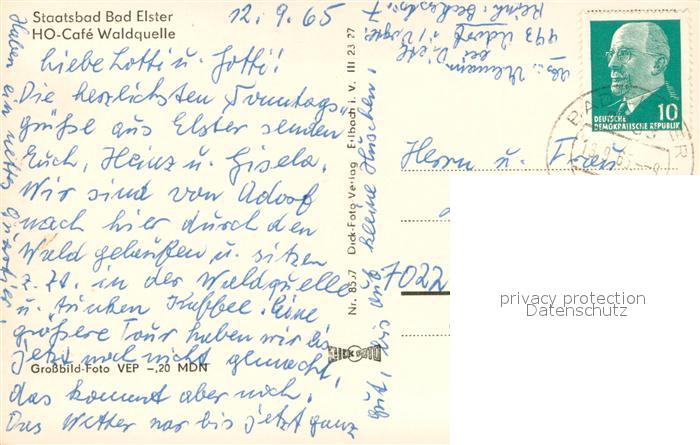 Staatsbad Bad Elster
HO-Café Waldquelle
12. 9. 65
Liebe Lotti u. Gotti!
Die herzlichsten Sonntags-
grüße aus Elster senden
Euch, Heinz u. Gisela.
Wir sind von Adorf
nach hier durch den
Wald gelaufen u. sitzen
z. Zt. in der Waldquelle
u. trinken Kaffee. Eine
größere Tour haben wir bis
jetzt noch nicht gemacht,
das kommt aber noch.
Das Wetter war bis jetzt ganz
gut, bis auf kleine Huschen,
Haben ein nettes Quartier.
Großbild-Foto VEP -,20 MDN
Nr. 8557 Dick-Foto-Verlag Erlbach i. V. III 23 27
DICK FOTO
Abs.: Ulmann
bei Dietz
993 Adorf i/Vogtl.
10
DEUTSCHE
DEMOKRATISCHE REPUBLIK
Herrn u. Frau
7022
privacy protection
Datenschutz